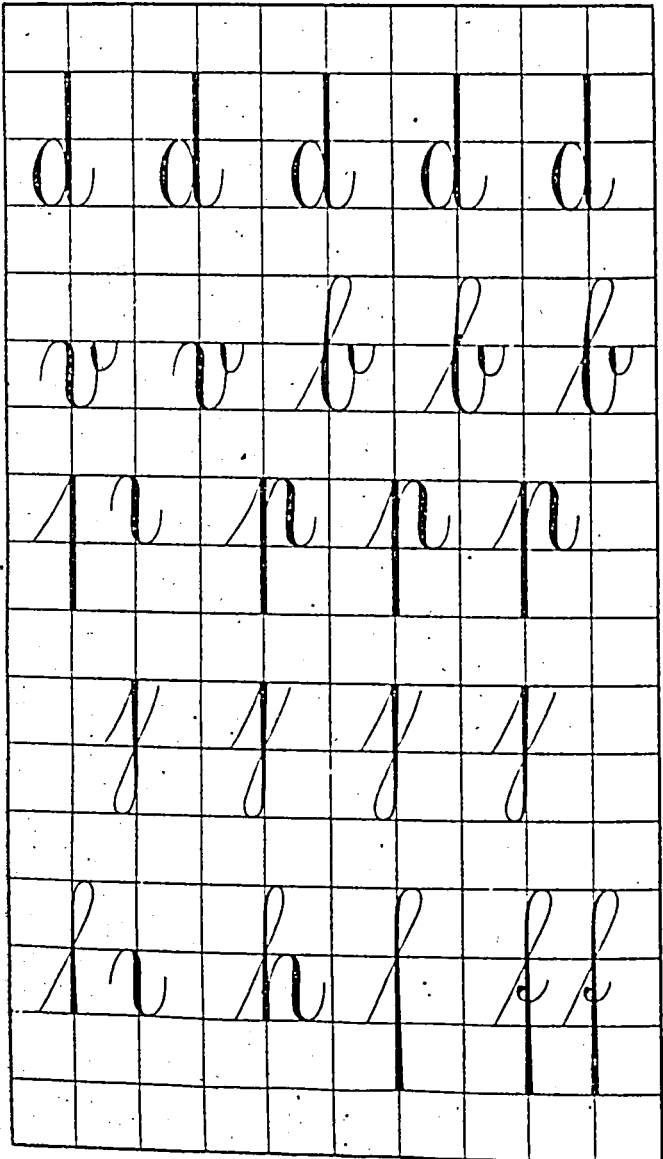 d d d d d
v v b b b
p p p
j j j j
h f f